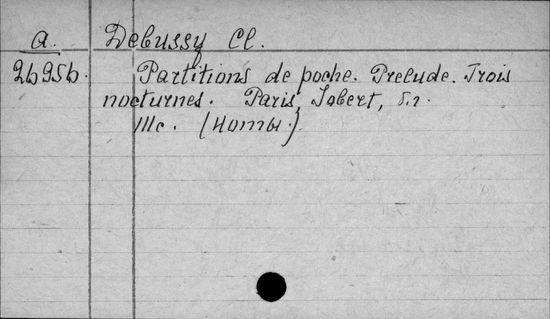 a. Debussy Cl.
26956. Partitions de poche. Prelude. Trois
nocturnes. Paris, Jobert, б.г.
IIIc. (Ноты.)